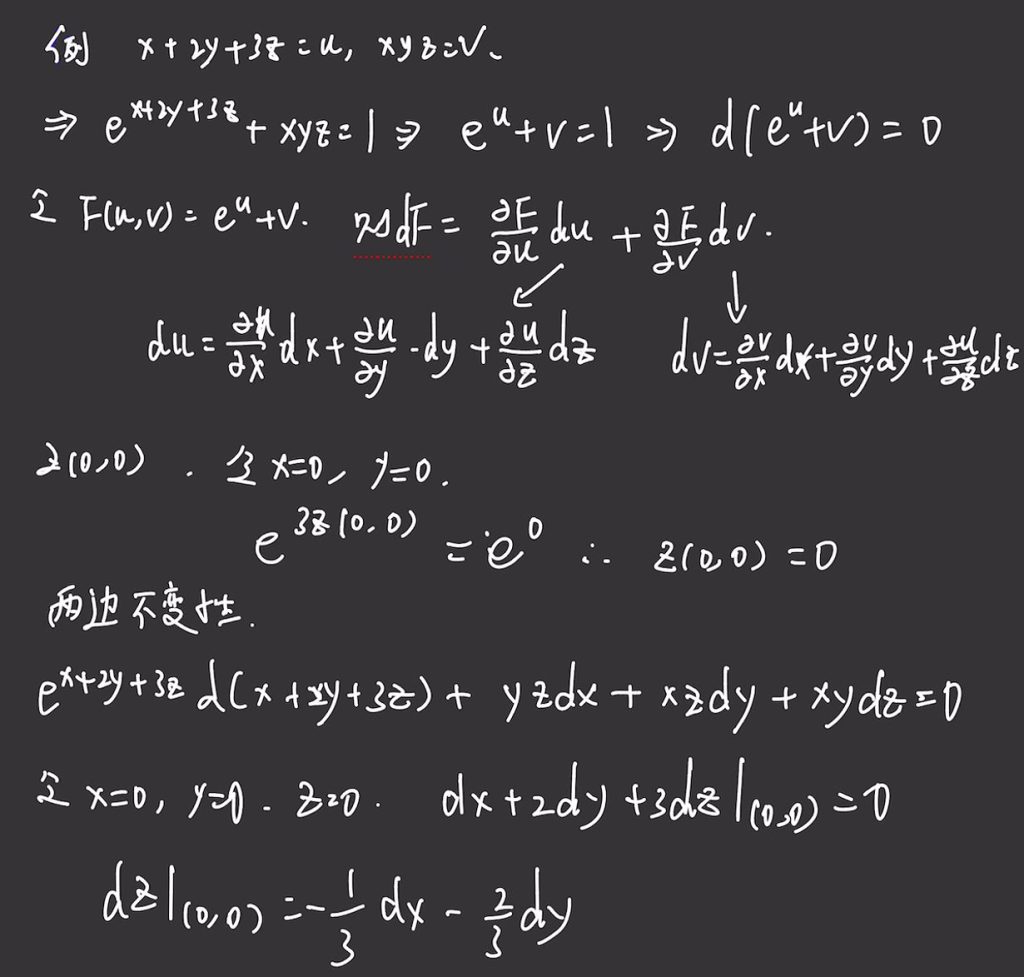 例 x+2y+3z=u, xyz=v.
⇒ e^{x+2y+3z} + xyz=1 ⇒ e^u+v=1 ⇒ d(e^u+v)=0
令 F(u,v)=e^u+v. 则dF= ∂F/∂u du + ∂F/∂v dv.
du=∂u/∂x dx+∂u/∂y·dy+∂u/∂z dz dv=∂v/∂x dx+∂v/∂y dy+∂u/∂z dz
z(0,0). 令 x=0, y=0.
e^{3z(0,0)} = e^0 ∴ z(0,0)=0
两边不变性.
e^{x+2y+3z} d(x+2y+3z)+ yzdx+ xzdy+xydz=0
令 x=0, y=0. z=0. dx+2dy+3dz|(0,0)=0
dz|(0,0)=-1/3 dx - 2/3 dy